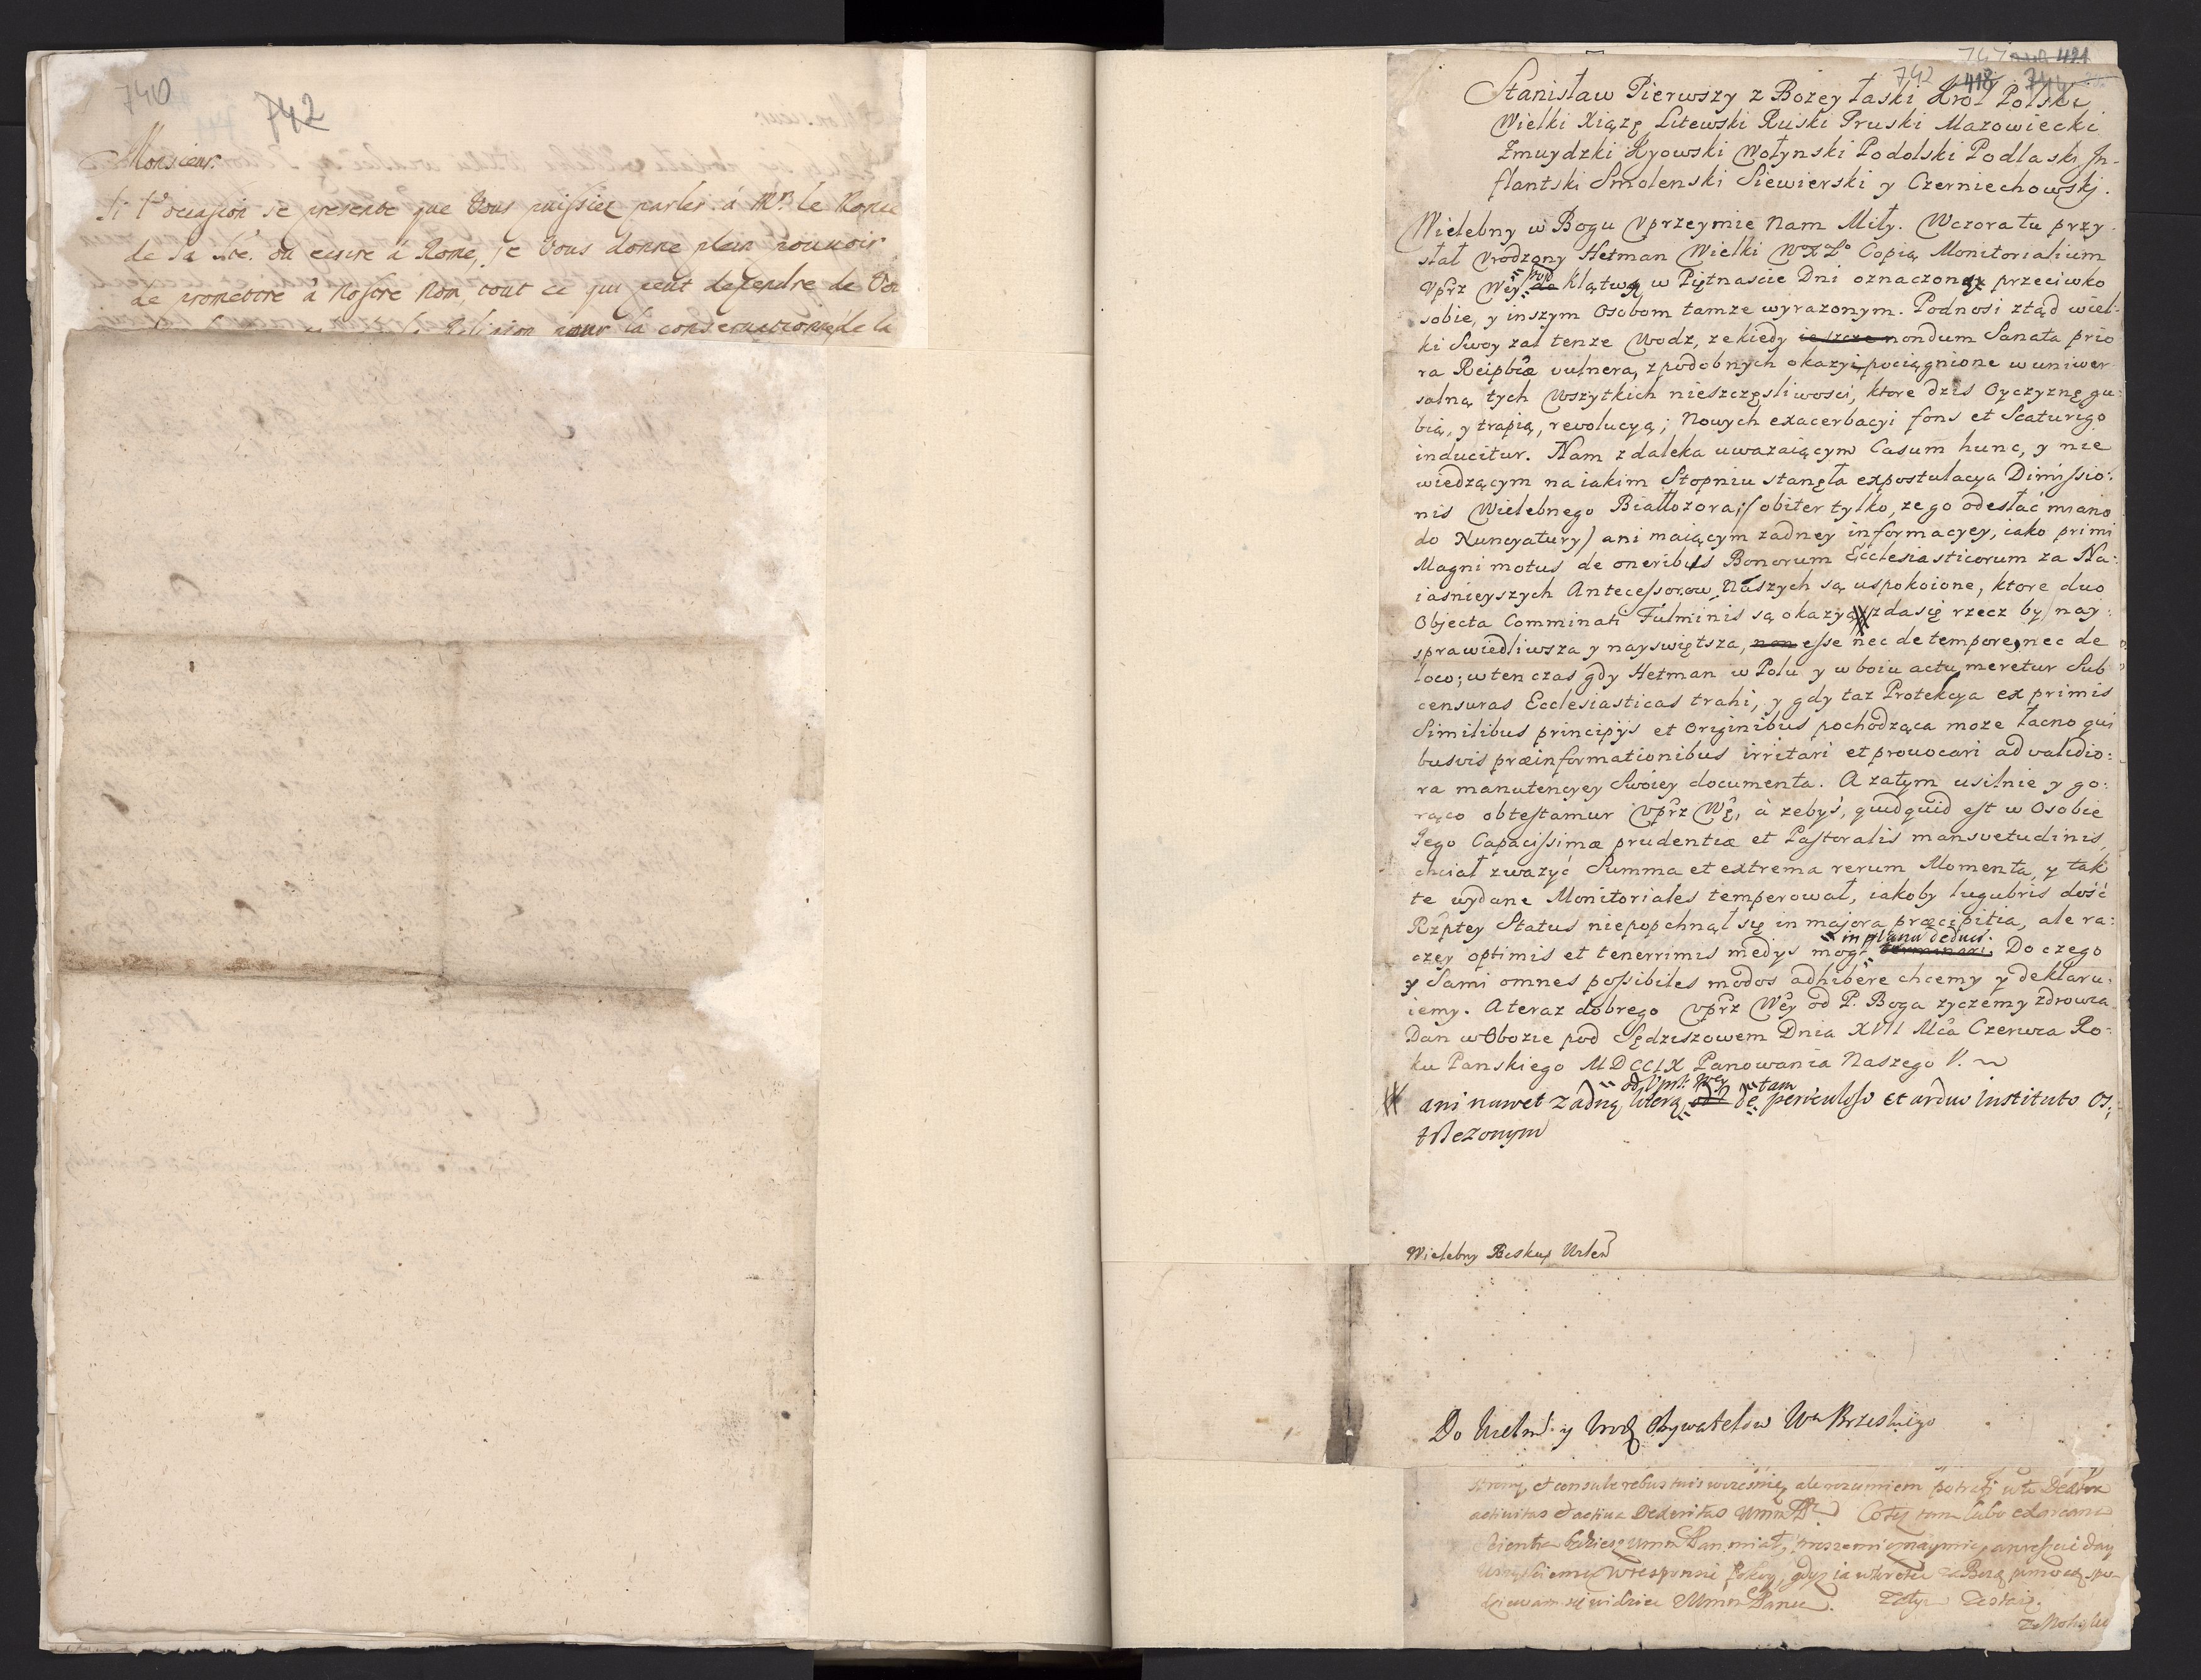 740
742
Monsieur.
Si l'occasion se presente que Vous puissiez parler á Mr. le Nonce
de Sa Sté. ou ecrire á Rome, je Vous donne plein pouvoir
de promettre á Nostre Nom, tout ce qui peut dependre de
Religion pour la conservation de la
747 421
742 418 744
Stanisław Pierwszy z Bozey łaski Krol Polski
Wielki Xiąze Litewski Ruski Pruski Mazowiecki
Zmuydzki Kyowski Wołynski Podolski Podlaski In-
flantski Smolenski Siewierski y Czerniechowskj.
Wielebny w Bogu Vprzeymie Nam Miły. Wczora tu przy-
słał Vrodzony Hetman Wielki WXLo Copią Monitorialium
Vprz Wey pod klątwą w Piętnascie Dni oznaczoną przeciwko
sobie, y inszym Osobom tamze wyrazonym. Podnosi ztąd wiel-
ki Swoy zal tenze Wodz, ze kiedy ieszcze nondum Sanata prio
ra Reipbcæ vulnera, z podobnych okazyi pociągnione w uniwer
salną tych wszytkich nieszczęsliwosci, ktore dzis Oyczyznę gu-
bią, y trapią, rewolucyą; Nowych exacerbacyi fons et Scaturigo
inducitur. Nam z daleka uwazaiącym Casum hunc, y nie
wiedzącym na iakim Stopniu stanęła expostulacya Dimissio:
nis Wielebnego Białłozora; (obiter tylko, ze go odesłać miano
do Nuncyatury) ani maiącym zadney informacyey, iako primi
Magni motus de oneribus Bonorum Ecclesiasticorum za Na:
iasnieyszych Antecessorow Naszych są uspokoione, ktore duo
Objecta Comminati Fulminis są okazyą zda się rzecz by nay:
sprawiedliwsza y nayswiętsza, non esse nec de tempore, nec de
loco; w ten czas gdy Hetman w Polu y w boiu actu meretur Sub
censuras Ecclesiasticas trahi, y gdy taz Protekcya ex primis
Similibus principijs et Originibus pochodząca moze łacno qui
busvis præinformationibus irritari et provocari ad validio:
ra manutencyey Swoiey documenta. A zatym usilnie y go:
rąco obtestamur Vprz Wę, à zebyś, quidquid est w Osobie
Jego Capacissimæ prudentiæ et Pastoralis mansvetudinis,
chciał zwazyć Summa et extrema rerum Momenta, y tak
te wydane Monitoriales temperował, iakoby lugubris dość
Rzptey Status niepopchnął się in majora præcipitia, ale ra:
in planu deduci.
czey optimis et tenerrimis medys mogł terminari. Do czego
y Sami omnes possibiles modos adhibere chcemy y deklaru:
iemy. A teraz dobrego Vprz Wey od P. Boga zyczemy zdrowia.
Dan w Obozie pod Sędziszowem Dnia XVII Mca Czerwca Ro-
ku Panskiego MDCCIX Panowania Naszego V.
od Vprz Wey tam
ani nawet zadną literą de periculoso et arduo instituto os;
trzezonym
Wielebny Biskup Wileń
Do Wielm. y Urodz Obywatelow Wa Brzeskiego
strony, et consule rebus tuis wczesnie, ale rozumiem potrafi w to
activitas et activa Dexteritas